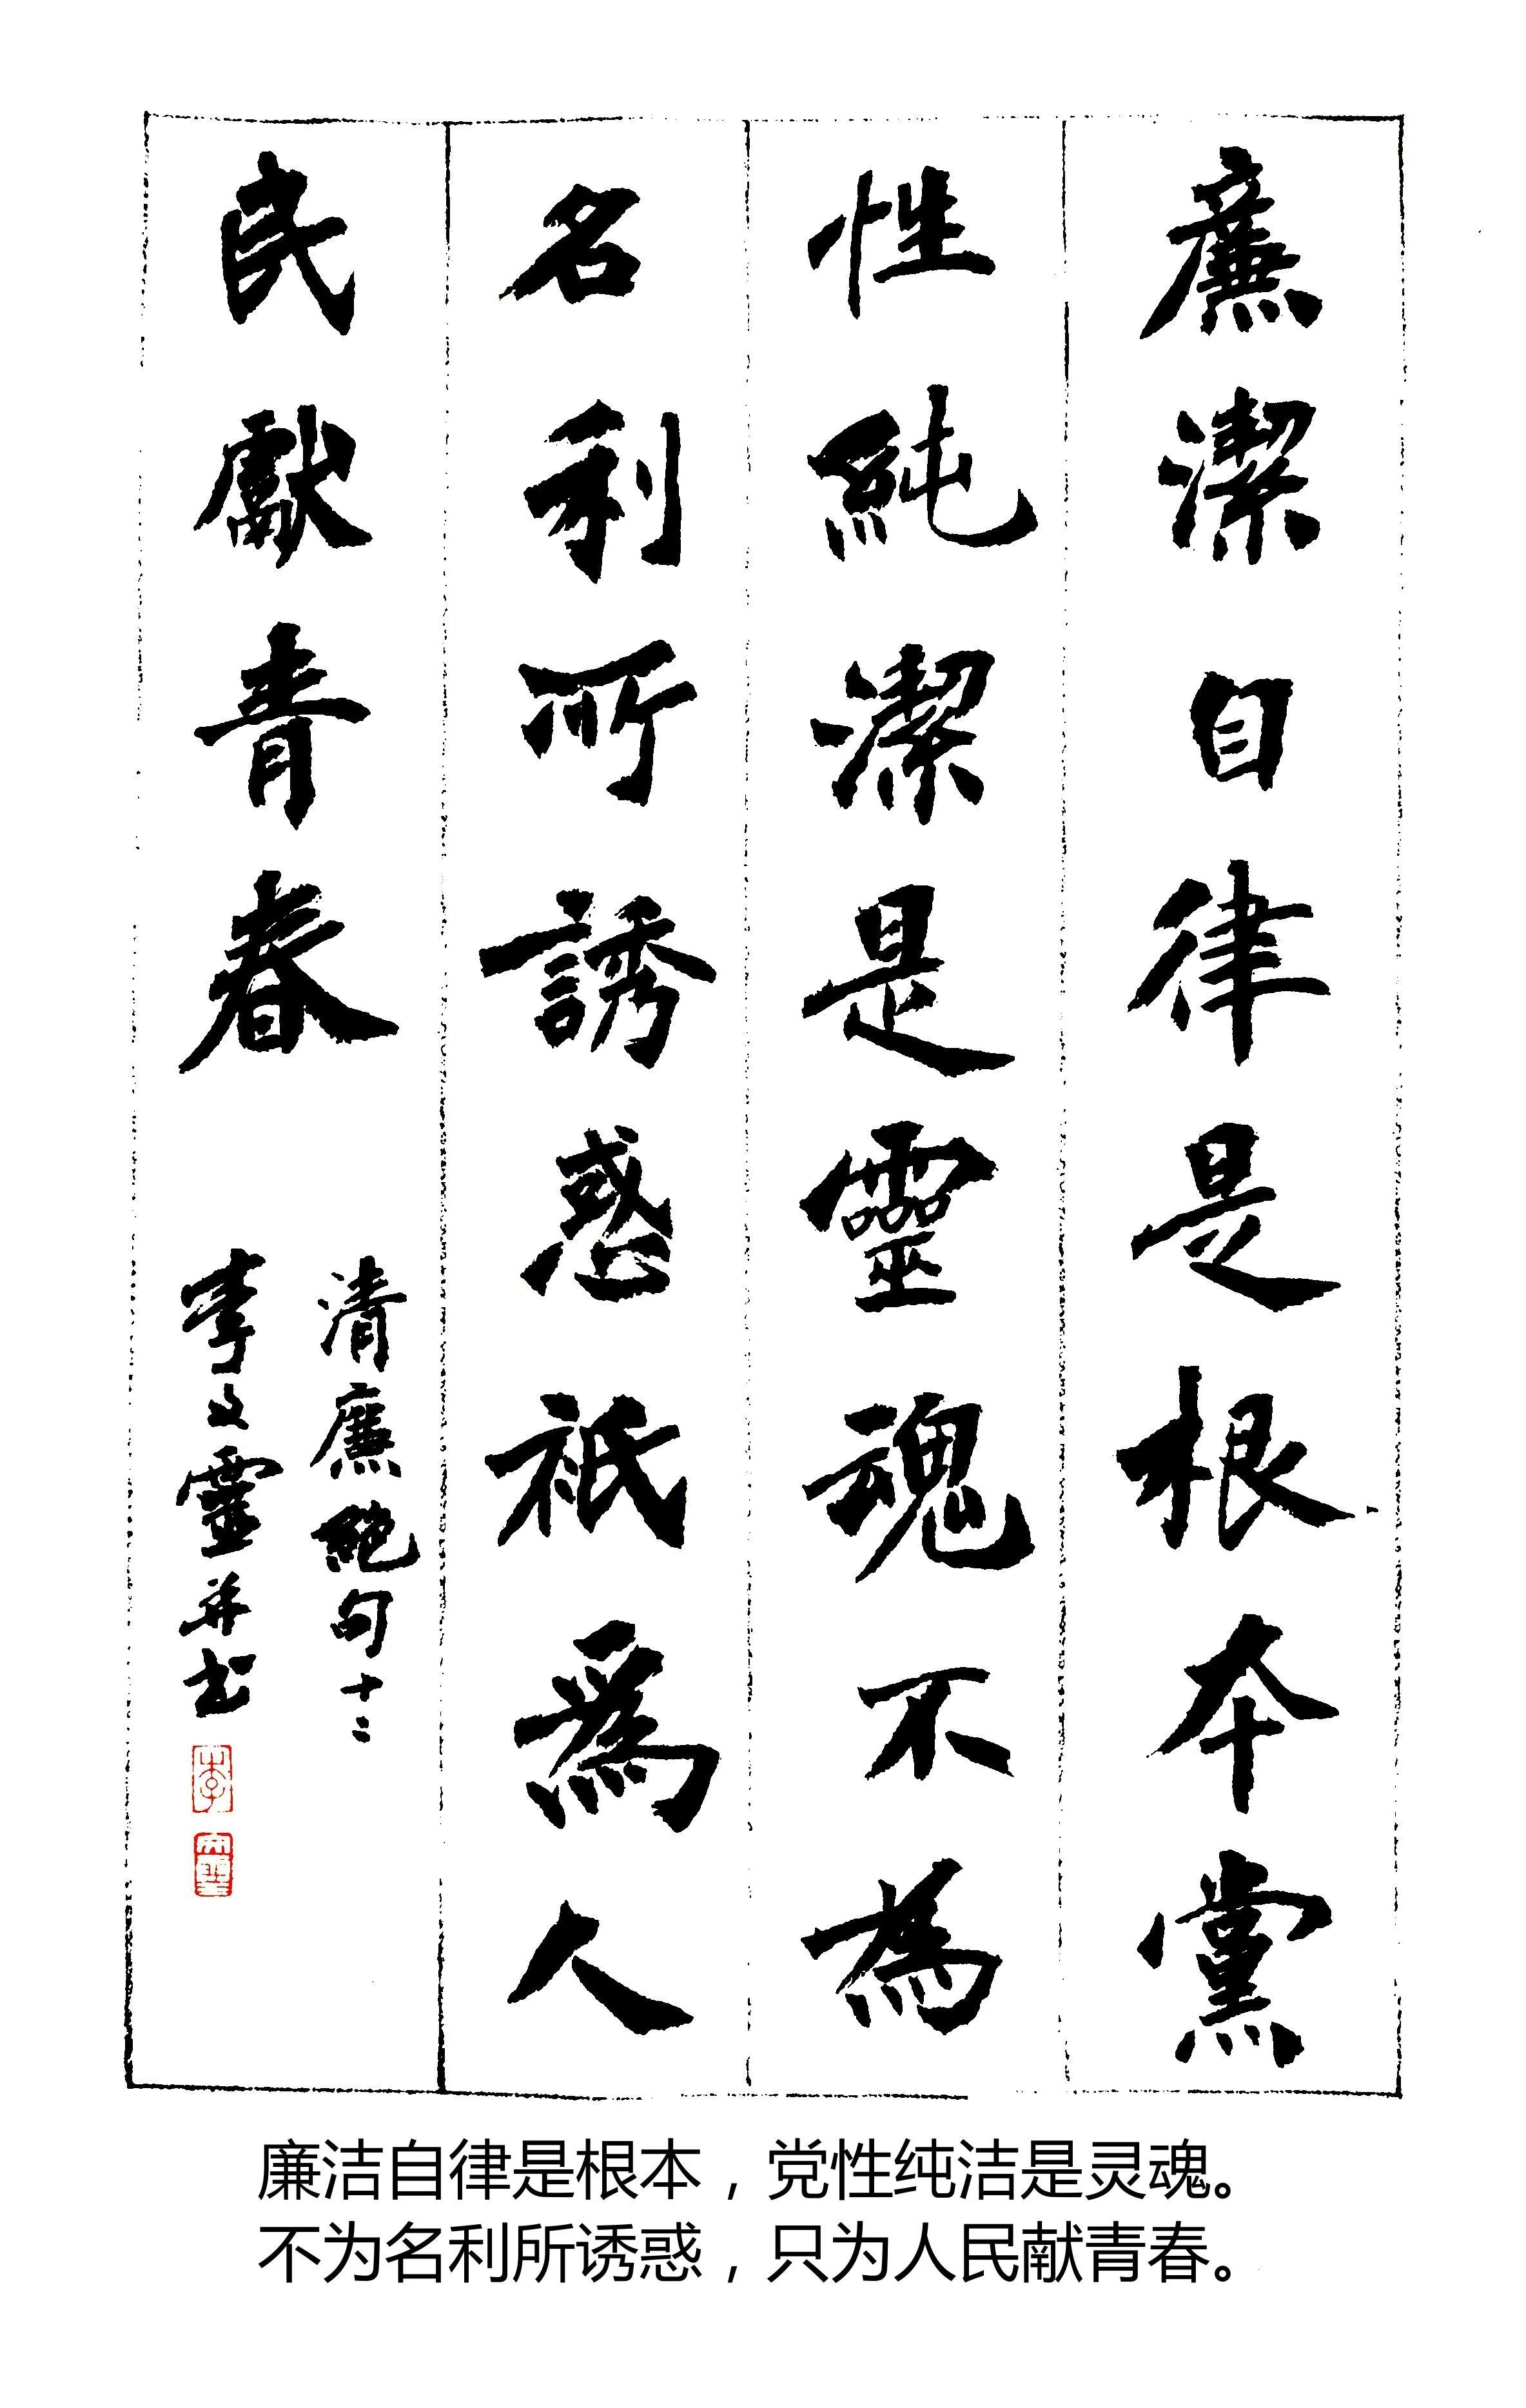 廉潔自律是根本黨
性純潔是靈魂不為
名利所誘惑祇爲人
民獻青春
清廉絕句十二
李文靈并书
李
文靈
廉洁自律是根本，党性纯洁是灵魂。
不为名利所诱惑，只为人民献青春。